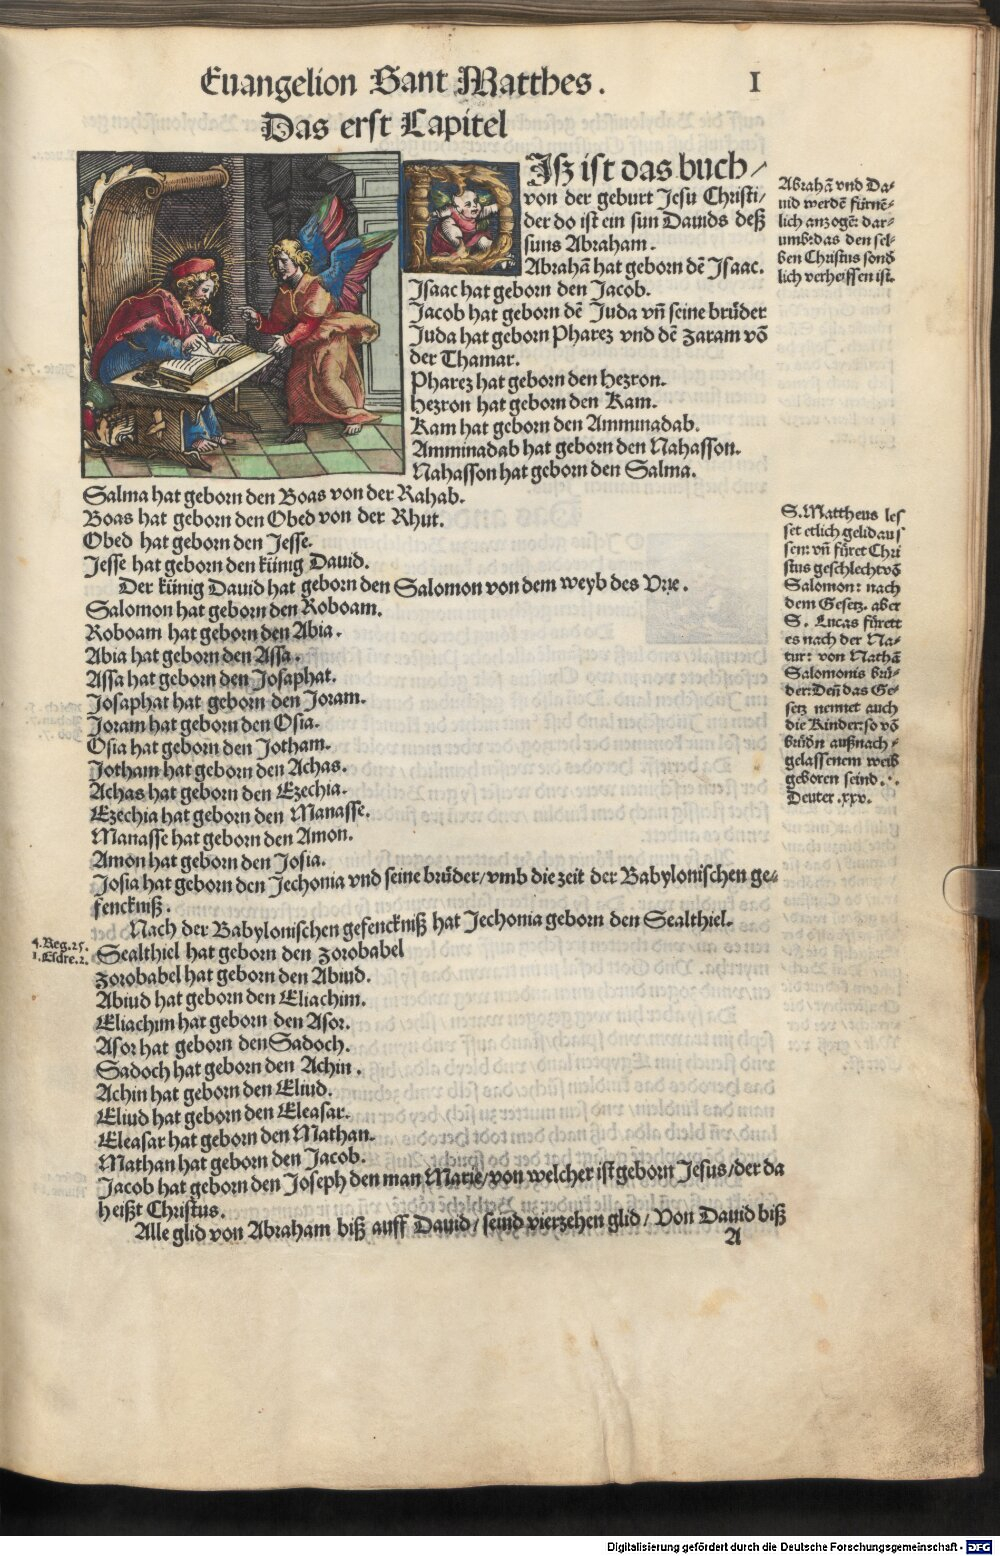 Euangelion Sant Matthes. I
Das erst Capitel
DIsz ist das buch/
von der geburt Jesu Christi/
der do ist ein sun Dauids deß
suns Abraham.
Abrahā hat geborn dē Isaac.
Isaac hat geborn den Jacob.
Jacob hat geborn dē Juda vn̄ seine brůder
Juda hat geborn Pharez vnd dē Zaram vō
der Thamar.
Pharez hat geborn den Hezron.
Hezron hat geborn den Ram.
Ram hat geborn den Amminadab.
Amminadab hat geborn den Nahasson.
Nahasson hat geborn den Salma.
Salma hat geborn den Boas von der Rahab.
Boas hat geborn den Obed von der Rhut.
Obed hat geborn den Jesse.
Jesse hat geborn den künig Dauid.
Der künig Dauid hat geborn den Salomon von dem weyb des Vrie.
Salomon hat geborn den Roboam.
Roboam hat geborn den Abia.
Abia hat geborn den Assa.
Assa hat geborn den Josaphat.
Josaphat hat geborn den Joram.
Joram hat geborn den Osia.
Osia hat geborn den Jotham.
Jotham hat geborn den Achas.
Achas hat geborn den Ezechia.
Ezechia hat geborn den Manasse.
Manasse hat geborn den Amon.
Amon hat geborn den Josia.
Josia hat geborn den Jechonia vnd seine brůder/vmb die zeit der Babylonischen ge=
fenckniß.
Nach der Babylonischen gefenckniß hat Jechonia geborn den Sealthiel.
Sealthiel hat geborn den Zorobabel
Zorobabel hat geborn den Abiud.
Abiud hat geborn den Eliachim.
Eliachim hat geborn den Asor.
Asor hat geborn den Sadoch.
Sadoch hat geborn den Achin.
Achin hat geborn den Eliud.
Eliud hat geborn den Eleasar.
Eleasar hat geborn den Mathan.
Mathan hat geborn den Jacob.
Jacob hat geborn den Joseph den man Marie/von welcher ist geborn Jesus/der da
heißt Christus.
Alle glid von Abraham biß auff Dauid/ seind vierzehen glid/ Von Dauid biß
A
Abrahā vnd Da=
uid werdē fürnē=
lich anzogē: dar=
umb: das den sel=
ben Christus sond
lich verheissen ist.
S. Mattheus les
set etlich gelid aus
sen: vn̄ füret Chri
stus geschlecht vō
Salomon: nach
dem Gesetz. aber
S. Lucas fürett
es nach der Na=
tur: von Nathā
Salomonis brů=
der: Den̄ das Ge=
setz nennet auch
die Kinder: so vō
brůdn außnach=
gelassenem weib
geboren seind.
Deuter. xxv.
4. Reg. 25.
1. Esdre. 2.
Digitalisierung gefördert durch die Deutsche Forschungsgemeinschaft - DFG